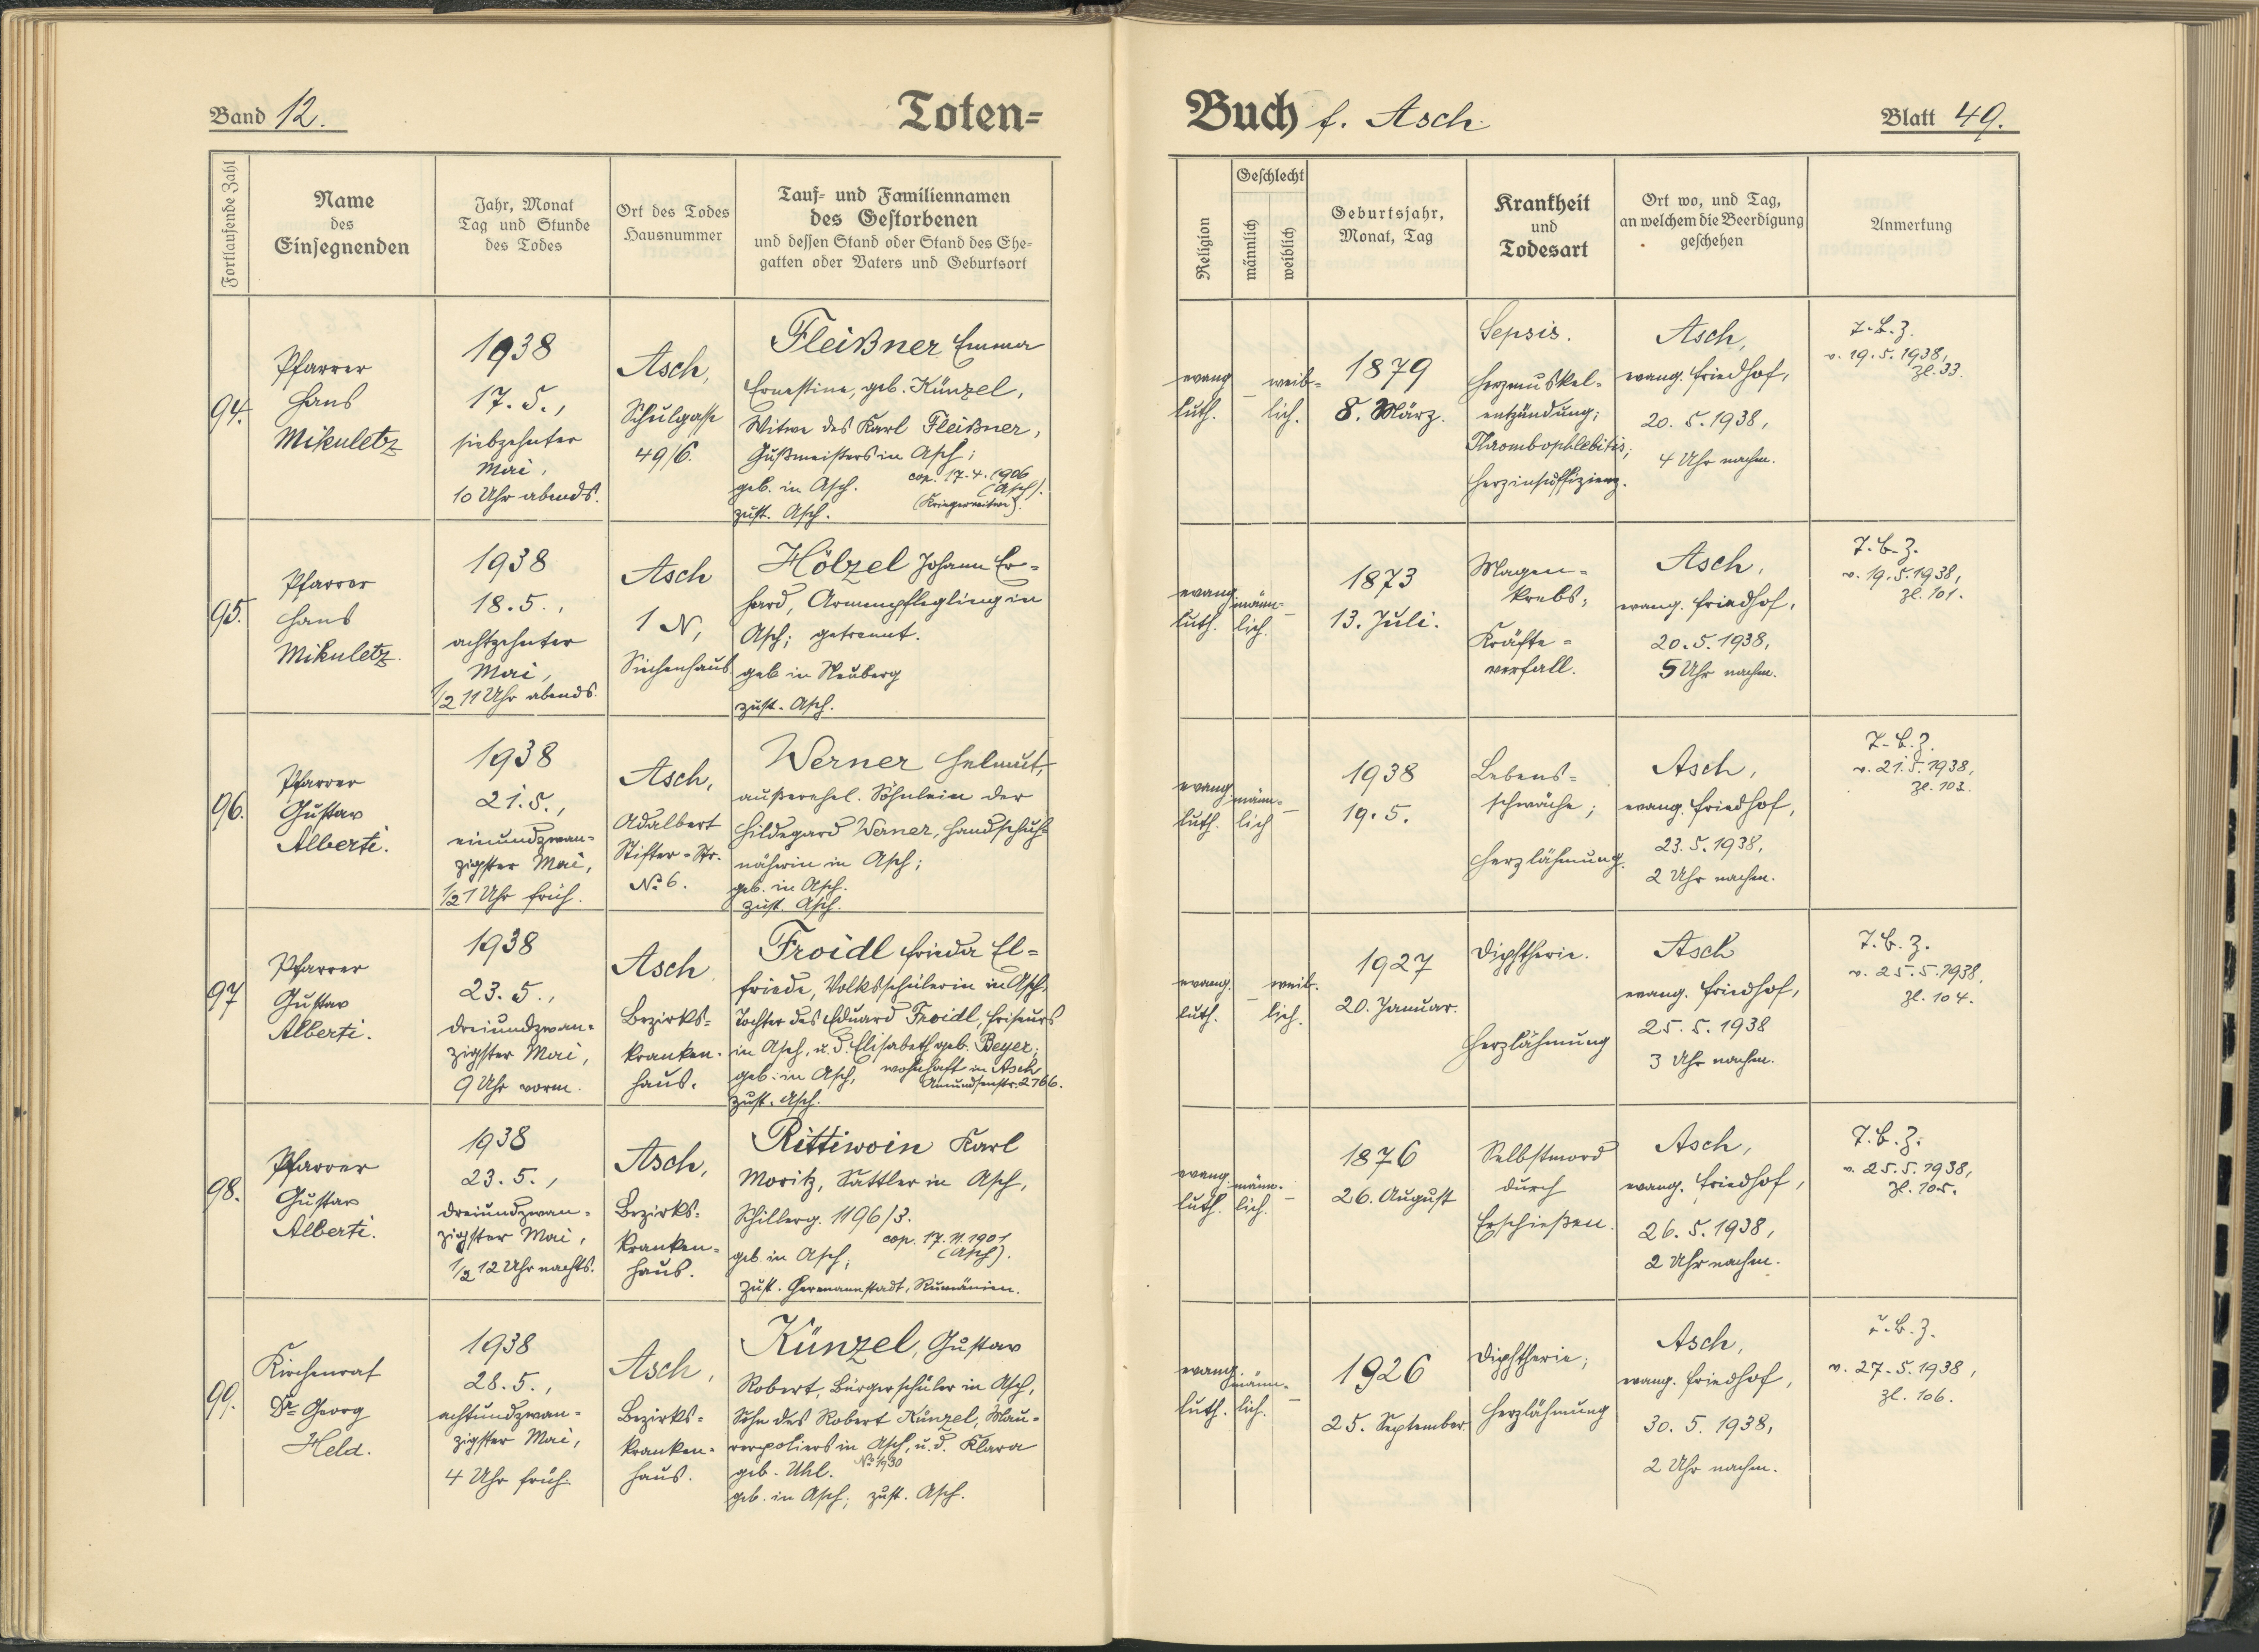 Band 12.
Toten=
Fortlaufende Zahl
Name
des
Einsegnenden
Jahr, Monat
Tag und Stunde
des Todes
Ort des Todes
Hausnummer
Tauf= und Familiennamen
des Gestorbenen
und dessen Stand oder Stand des Ehe=
gatten oder Vaters und Geburtsort
94.
Pfarrer
Hans
Mikuletz
1938
17. 5.,
siebzehnter
Mai,
10 Uhr abends.
Asch,
Schulgasse
49/6.
Fleißner Emma
Ernestine, geb. Künzel,
Witwe des Karl Fleißner,
Gußmeisters in Asch;
geb. in Asch. cop. 17. 4. 1906
(Asch).
zust. Asch. (Kriegerwitwe).
95.
Pfarrer
Hans
Mikuletz.
1938
18. 5.,
achtzehnter
Mai,
1/2 11 Uhr abends.
Asch
1 N,
Siechenhaus
Hölzel Johann Er=
hard, Armenpflegling in
Asch; getrennt.
geb in Neuberg
zust. Asch.
96.
Pfarrer
Gustav
Alberti.
1938
21. 5.,
einundzwan=
zigster Mai,
1/2 1 Uhr früh.
Asch,
Adalbert
Stifter=Str.
No 6.
Werner Helmut,
außerehel. Söhnlein der
Hildegard Werner, Handschuh=
näherin in Asch;
geb. in Asch.
zust. Asch.
97
Pfarrer
Gustav
Alberti.
1938
23. 5.,
dreiundzwan=
zigster Mai,
9 Uhr vorm.
Asch
Bezirks=
kranken=
haus.
Froidl Frieda El=
friede, Volksschülerin in Asch,
Tochter des Eduard Froidl, Friseurs
in Asch, u. d. Elisabeth geb. Beyer;
geb. in Asch, wohnhaft in Asch
Amundsenstr. 2766.
zust. Asch.
98.
Pfarrer
Gustav
Alberti.
1938
23. 5.,
dreiundzwan=
zigster Mai,
1/2 12 Uhr nachts.
Asch,
Bezirks=
kranken=
haus.
Rittiwoin Karl
Moritz, Sattler in Asch,
Schillerg. 1196/3.
cop. 17. 11. 1901
geb. in Asch; (Asch).
zust. Hermannstadt, Rumänien.
99.
Kirchenrat
Dr Georg
Held.
1938
28. 5.,
achtundzwan=
zigster Mai,
4 Uhr früh.
Asch,
Bezirks=
kranken=
haus.
Künzel, Gustav
Robert, Bürgerschüler in Asch,
Sohn des Robert Künzel, Mau=
rerpoliers in Asch, u. d. Klara
geb. Uhl. No 1930
geb. in Asch; zust. Asch.
Buch f. Asch.
Blatt 49.
Religion
Geschlecht
männlich
weiblich
Geburtsjahr,
Monat, Tag
Krankheit
und
Todesart
Ort wo, und Tag,
an welchem die Beerdigung
geschehen
Anmerkung
evang
luth.
–
weib=
lich.
1879
8. März.
Sepsis.
Herzmuskel=
entzündung;
Thrombophlebitis;
Herzinsuffizienz.
Asch,
evang. Friedhof,
20. 5. 1938,
4 Uhr nachm.
T. B. Z.
v. 19. 5. 1938,
Zl. 33.
evang
luth.
männ=
lich.
–
1873
13. Juli.
Magen=
krebs;
Kräfte=
verfall.
Asch,
evang. Friedhof,
20. 5. 1938,
5 Uhr nachm.
T. B. Z.
v. 19. 5. 1938,
Zl. 101.
evang
luth.
männ=
lich
–
1938
19. 5.
Lebens=
schwäche;
Herzlähmung.
Asch,
evang. Friedhof,
23. 5. 1938,
2 Uhr nachm.
T. B. Z.
v. 21. 5. 1938,
Zl. 103.
evang.
luth.
–
weib.
lich.
1927
20. Januar.
Diphtherie.
Herzlähmung
Asch
evang. Friedhof,
25. 5. 1938
3 Uhr nachm.
T. B. Z.
v. 25. 5. 1938,
Zl. 104.
evang.
luth.
männ=
lich.
–
1876
26. August
Selbstmord
durch
Erschießen.
Asch,
evang. Friedhof,
26. 5. 1938,
2 Uhr nachm.
T. B. Z.
v. 25. 5. 1938,
Zl. 105.
evang.
luth.
männ=
lich.
–
1926
25. September.
Diphtherie;
Herzlähmung
Asch,
evang. Friedhof,
30. 5. 1938,
2 Uhr nachm.
B. Z.
v. 27. 5. 1938,
Zl. 106.